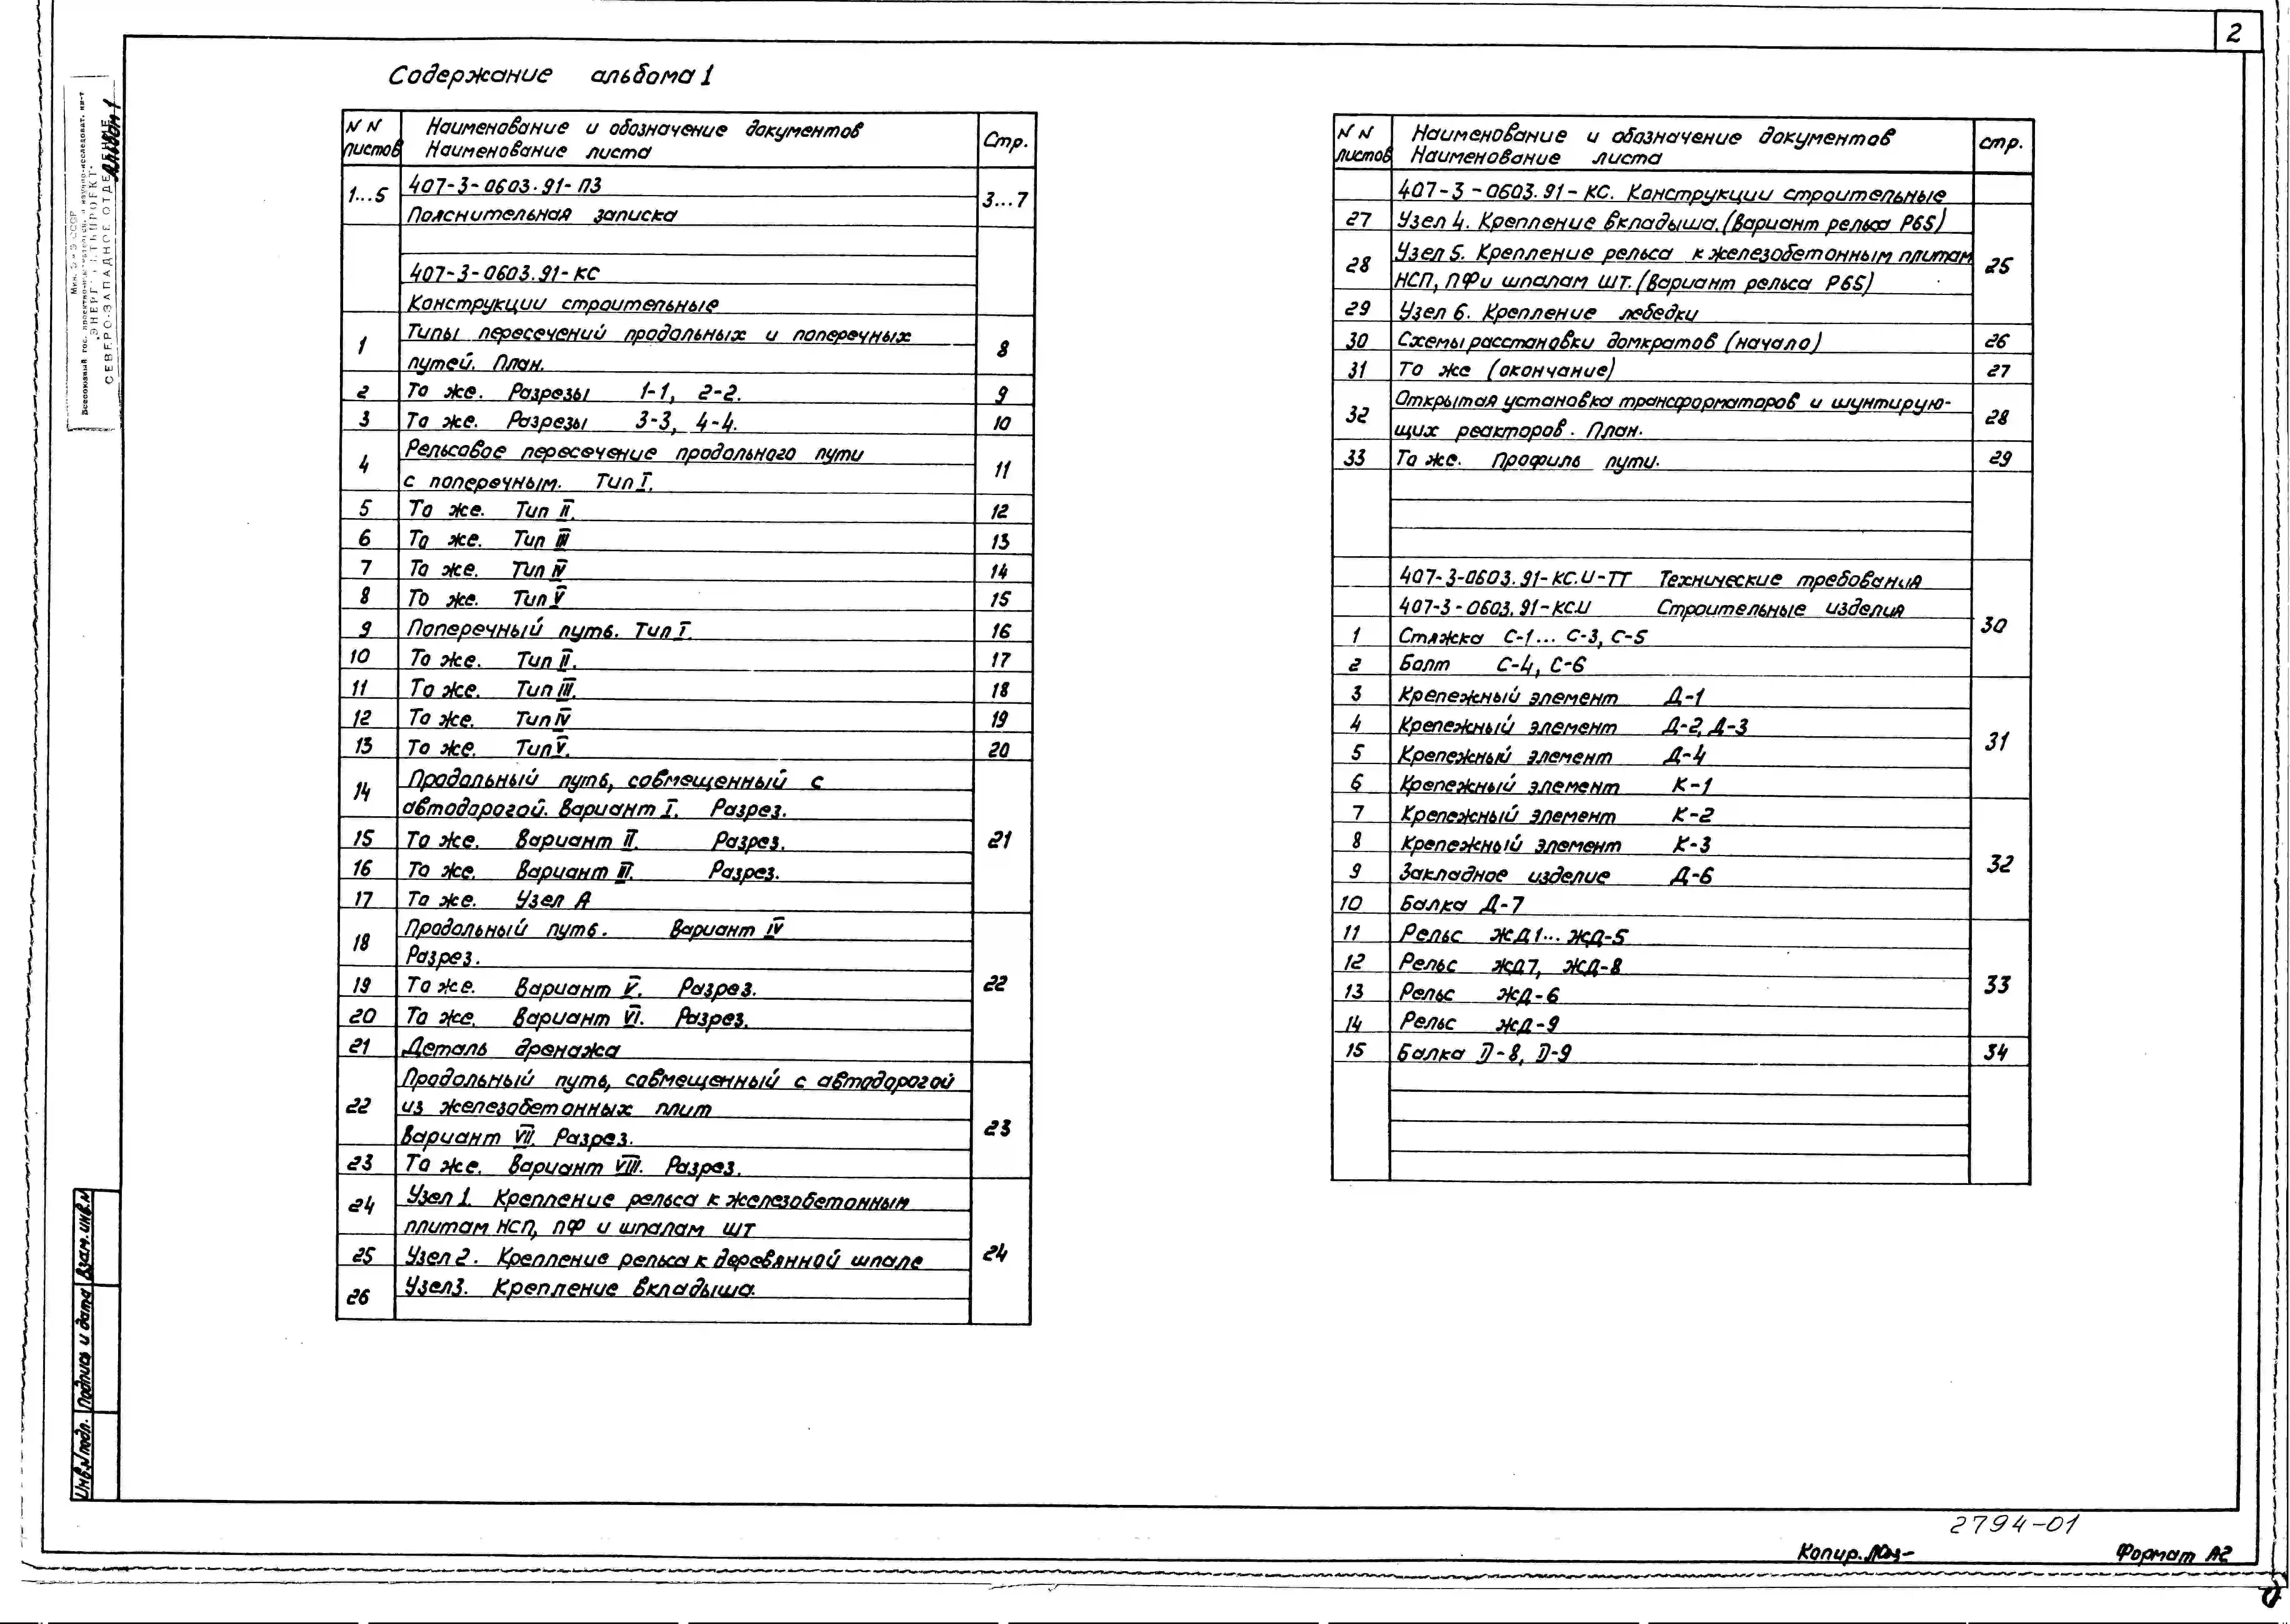 2
Содержание альбома 1
N N листов
Наименование и обозначение документов
Наименование листа
Стр.
1...5
407-3-0603.91-ПЗ
3...7
Пояснительная записка
407-3-0603.91-КС
Конструкции строительные
1
Типы пересечений продольных и поперечных
путей. План.
8
2 То же. Разрезы 1-1, 2-2. 9
3 То же. Разрезы 3-3, 4-4. 10
4
Рельсовое пересечение продольного пути
с поперечным. Тип I.
11
5 То же. Тип II. 12
6 То же. Тип III 13
7 То же. Тип IV 14
8 То же. Тип V 15
9 Поперечный путь. Тип I. 16
10 То же. Тип II. 17
11 То же. Тип III. 18
12 То же. Тип IV 19
13 То же. Тип V. 20
14
Продольный путь, совмещенный с
автодорогой. Вариант I. Разрез.
15 То же. Вариант II. Разрез. 21
16 То же. Вариант III. Разрез.
17 То же. Узел А
18
Продольный путь. Вариант IV
Разрез.
19 То же. Вариант V. Разрез. 22
20 То же. Вариант VI. Разрез.
21 Деталь дренажа
22
Продольный путь, совмещенный с автодорогой
из железобетонных плит
Вариант VII. Разрез.
23
23 То же. Вариант VIII. Разрез.
24
Узел 1. Крепление рельса к железобетонным
плитам НСП, ПФ и шпалам ШТ
25 Узел 2. Крепление рельса к деревянной шпале 24
26 Узел 3. Крепление вкладыша.
N N листов
Наименование и обозначение документов
Наименование листа
стр.
407-3-0603.91-КС. Конструкции строительные
27 Узел 4. Крепление вкладыша. (Вариант рельса Р65)
28
Узел 5. Крепление рельса к железобетонным плитам
НСП, ПФ и шпалам ШТ. (Вариант рельса Р65)
25
29 Узел 6. Крепление лебедки
30 Схемы расстановки домкратов (начало) 26
31 То же (окончание) 27
32
Открытая установка трансформаторов и шунтирую-
щих реакторов. План.
28
33 То же. Профиль пути. 29
407-3-0603.91-КС.И-ТТ Технические требования
407-3-0603.91-КСИ Строительные изделия
30
1 Стяжка С-1... С-3, С-5
2 Болт С-4, С-6
3 Крепежный элемент Д-1
4 Крепежный элемент Д-2, Д-3
31
5 Крепежный элемент Д-4
6 Крепежный элемент К-1
7 Крепежный элемент К-2
8 Крепежный элемент К-3
32
9 Закладное изделие Д-6
10 Балка Д-7
11 Рельс ЖД1... ЖД-5
12 Рельс ЖД7, ЖД-8
33
13 Рельс ЖД-6
14 Рельс ЖД-9
15 Балка Д-8, Д-9 34
Альбом 1
Всесоюзный гос. проектно-изыскательск. и научно-исследоват. ин-т
"ЭНЕРГОСЕТЬПРОЕКТ"
СЕВЕРО-ЗАПАДНОЕ ОТДЕЛЕНИЕ
Инв.N подл. Подпись и дата Взам. инв.N
2794-01
Копир.
Формат А2